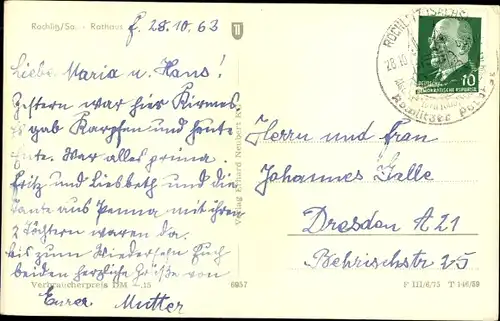 Rochlitz/Sa., Rathaus
f. 28.10.63
Liebe Maria u. Hans!
Gestern war hier Kirmes
es gab Karpfen und heute
Ente. War alles prima.
Fritz und Liesbeth und die
Tante aus Penna mit ihren
2 Töchtern waren da.
Bis zum Wiedersehn Euch
beiden herzliche Grüße von
Eurer Mutter
Verbraucherpreis DM -,15
6957
Verlag Erhard Neubert KG
ROCHLITZ (SACHS)
28.10
Rochlitzer Por
DEUTSCHE
DEMOKRATISCHE REPUBLIK
10
Herrn und Frau
Johannes Salle
Dresden A 21
Behrischstr 25
F III/6/75 T 146/59